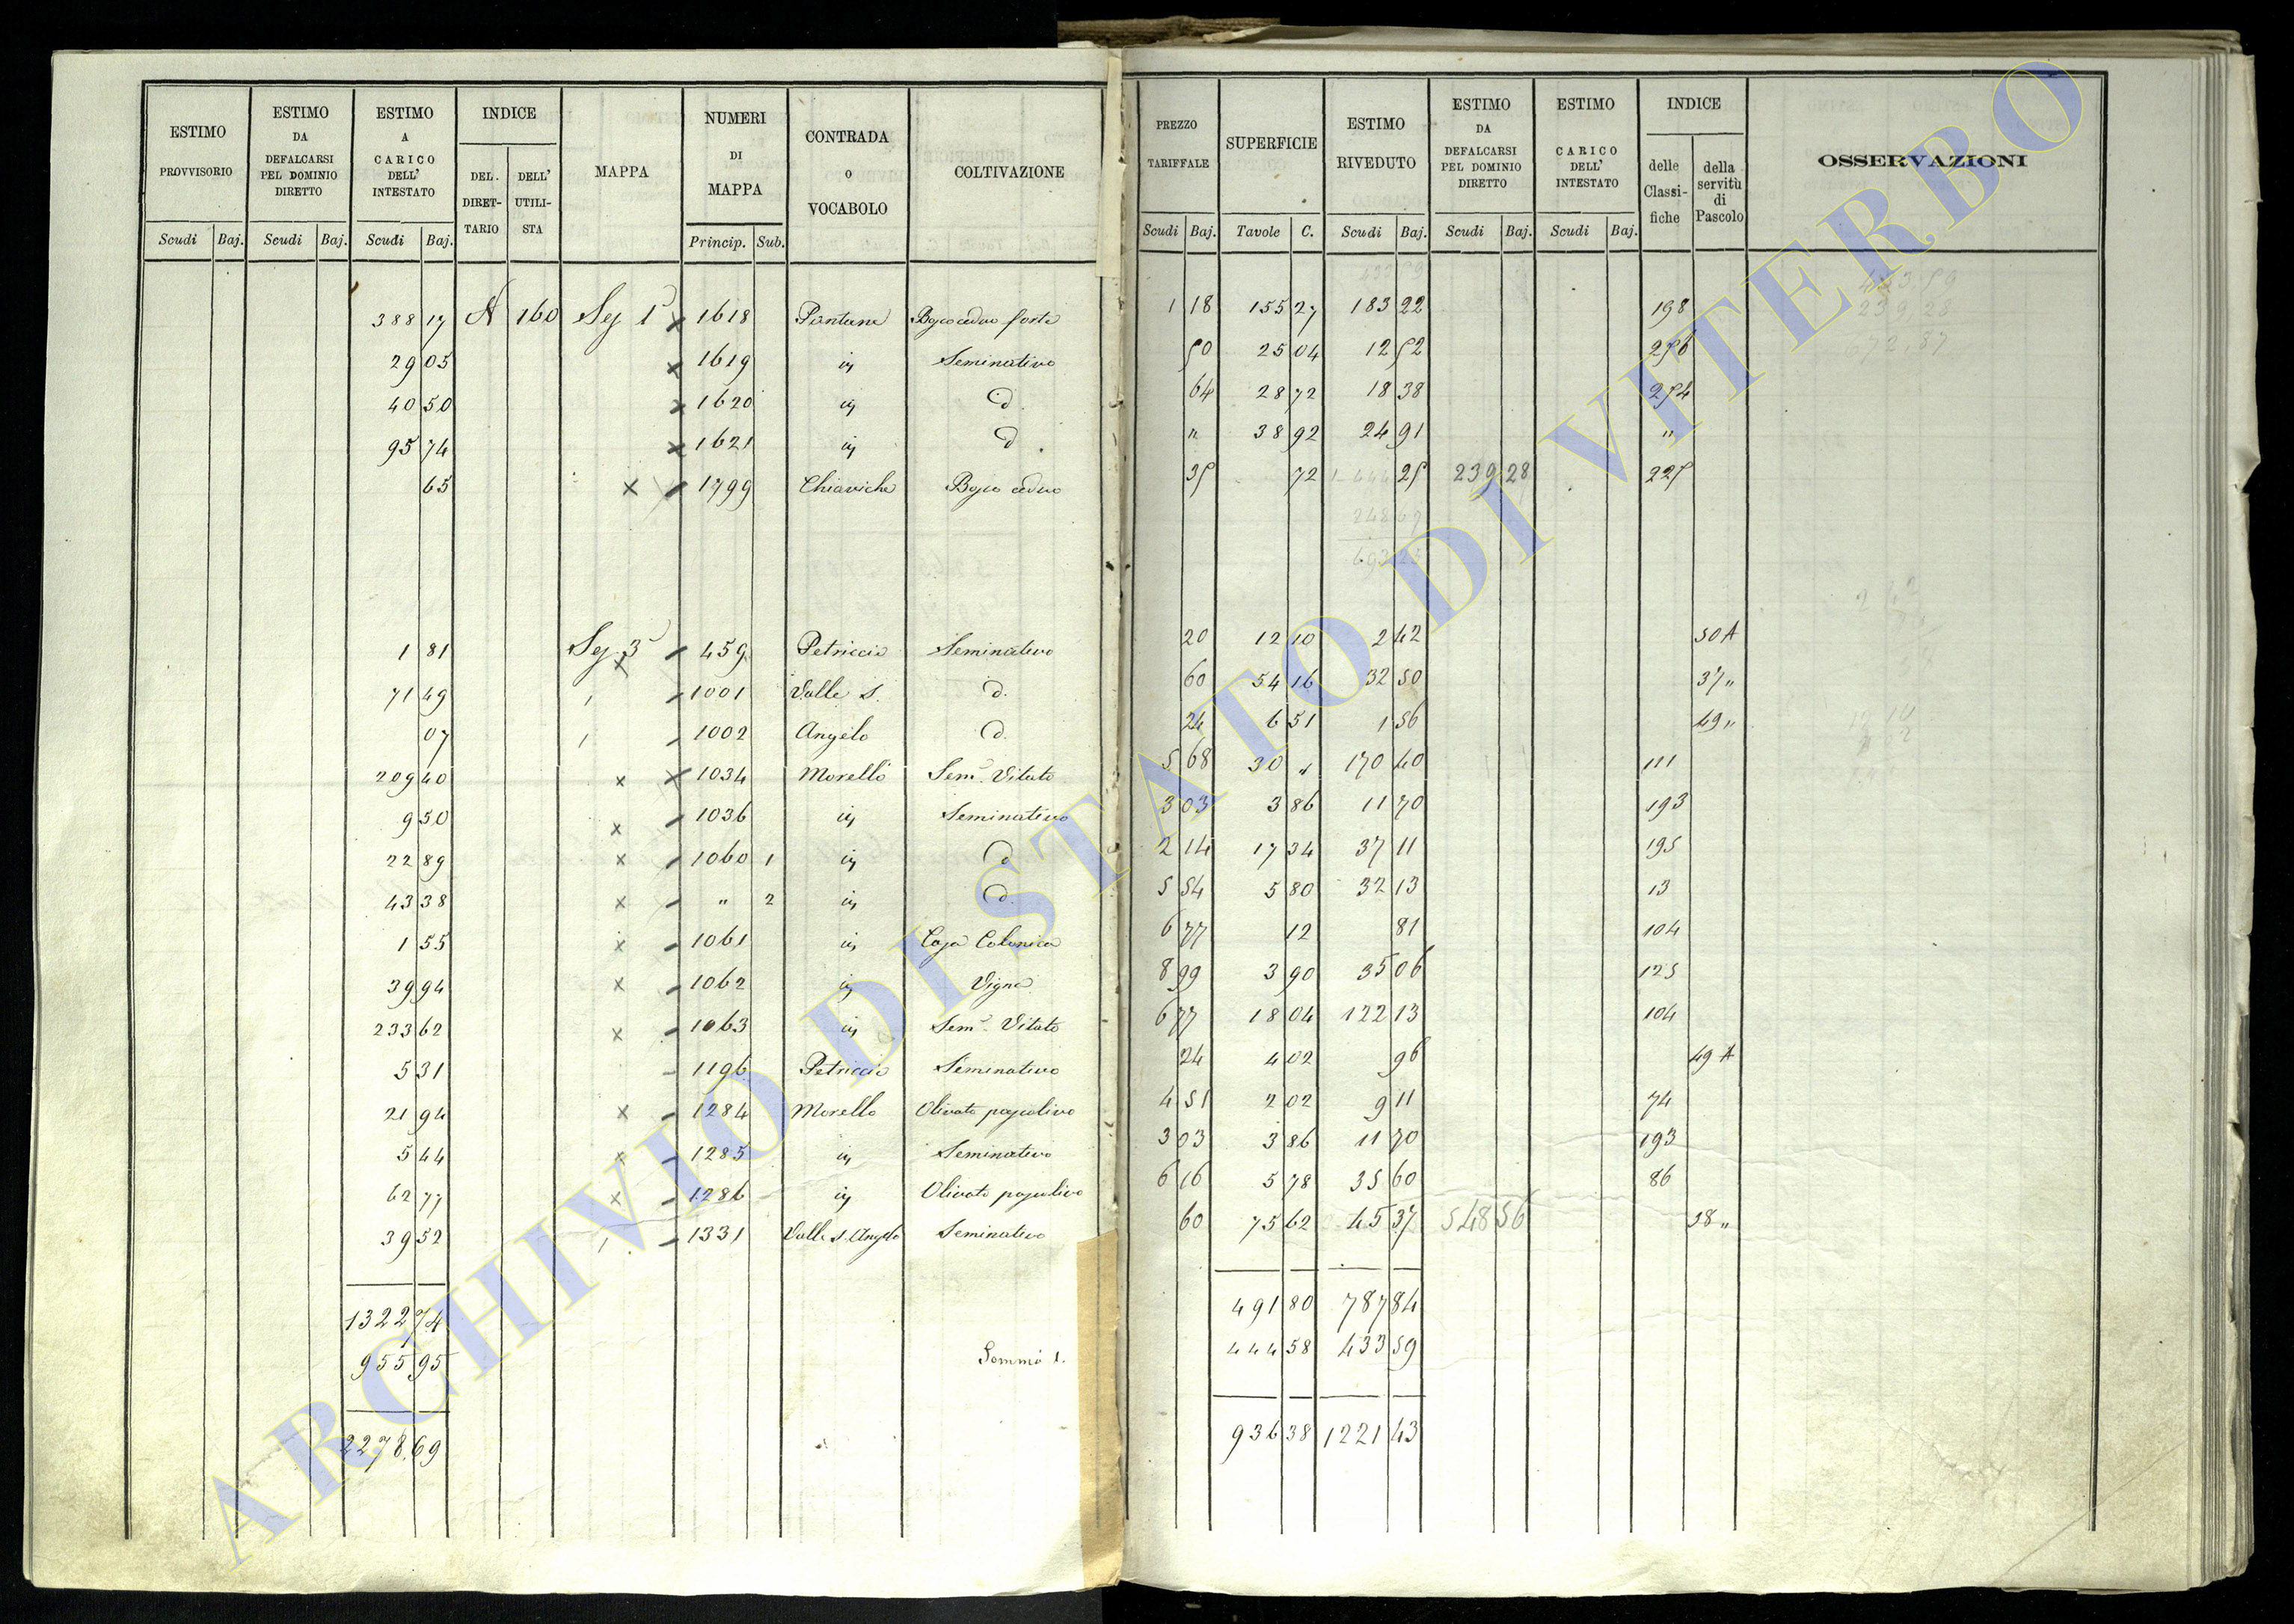 ESTIMO PROVVISORIO Scudi Baj.
ESTIMO DA DEFALCARSI PEL DOMINIO DIRETTO Scudi Baj.
ESTIMO A CARICO DELL' INTESTATO Scudi Baj.
INDICE DEL DIRETTARIO DELL' UTILISTA
MAPPA
NUMERI DI MAPPA Princip. Sub.
CONTRADA o VOCABOLO
COLTIVAZIONE
PREZZO TARIFFALE Scudi Baj.
SUPERFICIE Tavole C.
ESTIMO RIVEDUTO Scudi Baj.
ESTIMO DA DEFALCARSI PEL DOMINIO DIRETTO Scudi Baj.
ESTIMO A CARICO DELL' INTESTATO Scudi Baj.
INDICE delle Classifiche della servitù di Pascolo
OSSERVAZIONI
388 17 A 160 Sez 1ª x 1618 Pantane Bosco ceduo forte 1 18 155 27 183 22 198
29 05 x 1619 iv Seminativo 50 25 04 12 52 276
40 50 x 1620 iv d. 64 28 72 18 38 274
95 74 x 1621 iv d. " 38 92 24 91 "
65 x 1799 Chiaviche Bosco ceduo 35 72 25 239 28 225
248 67
693 25
1 81 Sez 3ª x 459 Petriccio Seminativo 20 12 10 2 42 50 A
71 49 1001 Valle S. d. 60 54 16 32 50 37 "
07 1002 Angelo d. 24 6 51 1 56 49 "
209 40 x x 1034 Morello Semº Vitato 5 68 30 " 170 40 111
9 50 x 1036 iv Seminativo 3 03 3 86 11 70 193
22 89 x 1060 1 iv d 2 14 17 34 37 11 195
43 38 x " 2 iv d. 5 54 5 80 32 13 13
1 55 x 1061 iv Casa Colonica 6 77 12 81 104
39 94 x 1062 iv Vigna 8 99 3 90 35 06 125
233 62 x 1063 iv Semº Vitato 6 77 18 04 122 13 104
5 31 1196 Petriccio Seminativo 24 4 02 96 49 A
21 94 x 1284 Morello Olivato pascolivo 4 51 2 02 9 11 74
5 44 x 1285 iv Seminativo 3 03 3 86 11 70 193
62 77 x 1286 iv Olivato pascolivo 6 16 5 78 35 60 86
39 52 1331 Valle S. Angelo Seminativo 60 75 62 45 37 548 56 38 "
1322 74 491 80 787 84
955 95 Somma 1. 444 58 433 59
2278 69 936 38 1221 43
ARCHIVIO DI STATO DI VITERBO